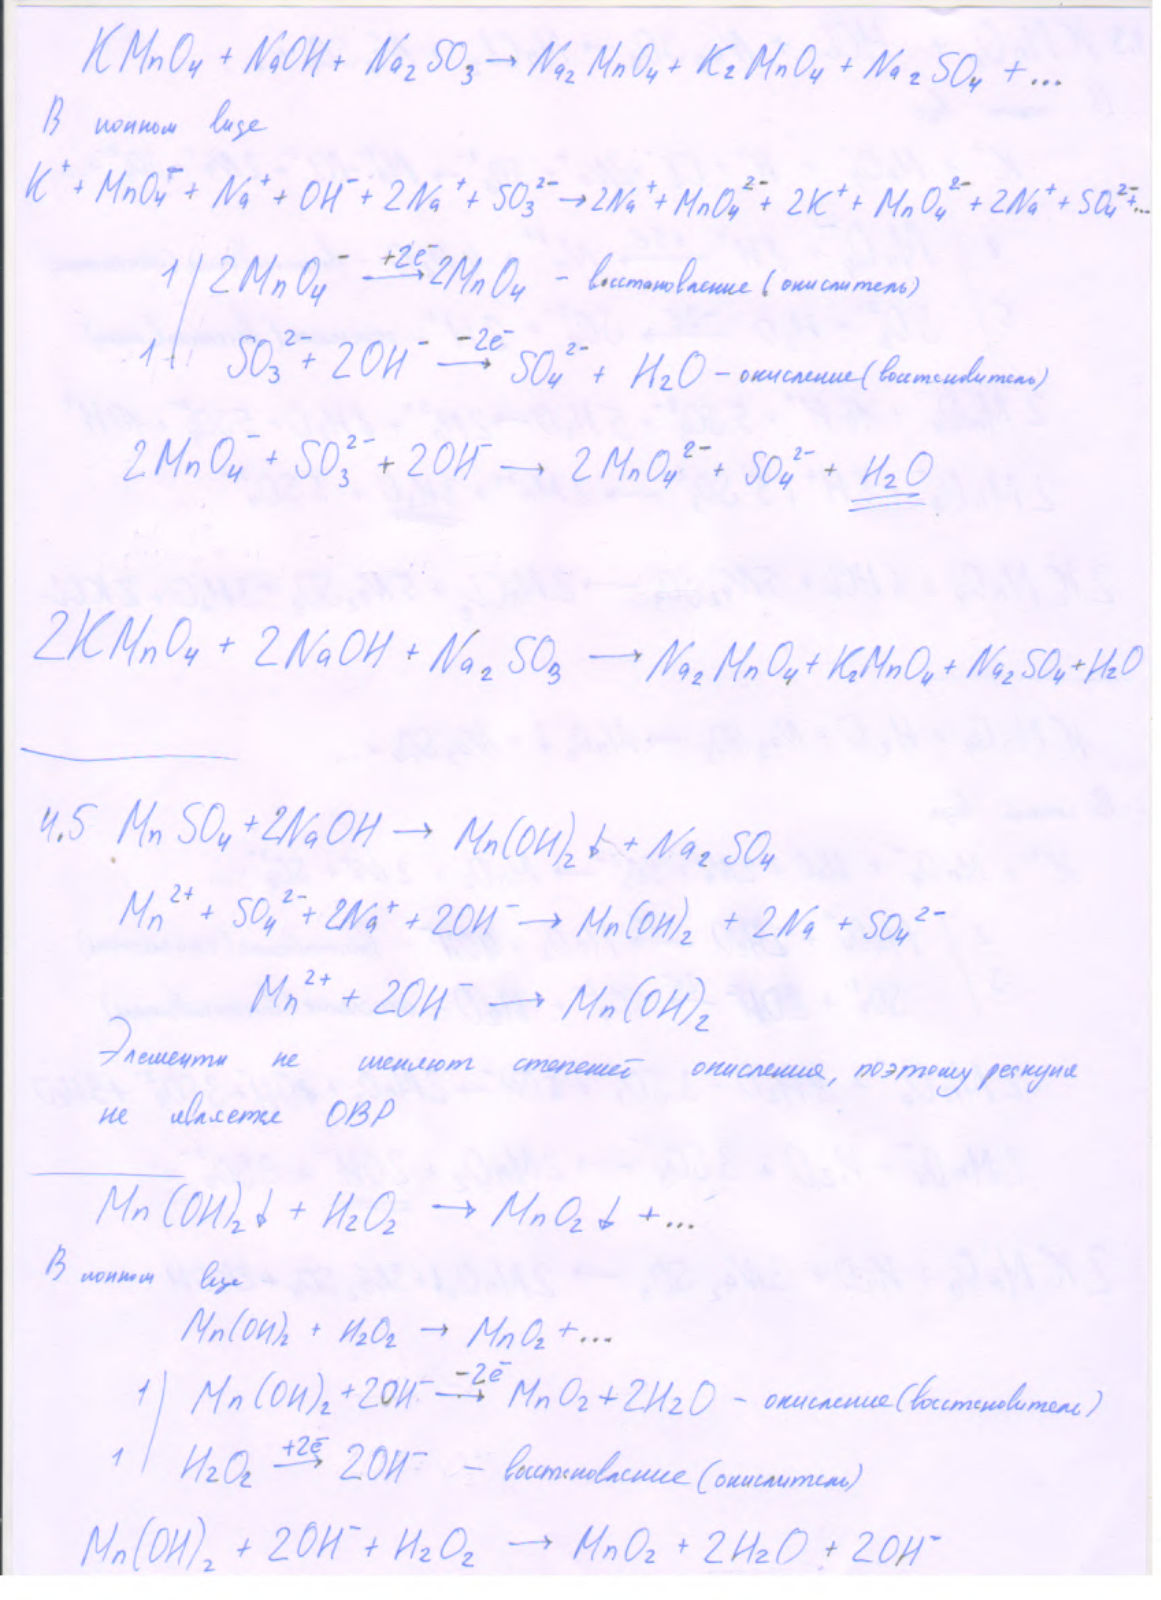 KMnO₄ + NaOH + Na₂SO₃ → Na₂MnO₄ + K₂MnO₄ + Na₂SO₄ + ...
В ионном виде
K⁺ + MnO₄⁻ + Na⁺ + OH⁻ + 2Na⁺ + SO₃²⁻ → 2Na⁺ + MnO₄²⁻ + 2K⁺ + MnO₄²⁻ + 2Na⁺ + SO₄²⁻ + ...
1 | 2MnO₄⁻ +2e⁻ → 2MnO₄ - восстановление (окислитель)
1 | SO₃²⁻ + 2OH⁻ -2e⁻ → SO₄²⁻ + H₂O - окисление (восстановитель)
2MnO₄⁻ + SO₃²⁻ + 2OH⁻ → 2MnO₄²⁻ + SO₄²⁻ + H₂O
2KMnO₄ + 2NaOH + Na₂SO₃ → Na₂MnO₄ + K₂MnO₄ + Na₂SO₄ + H₂O
4.5 MnSO₄ + 2NaOH → Mn(OH)₂↓ + Na₂SO₄
Mn²⁺ + SO₄²⁻ + 2Na⁺ + 2OH⁻ → Mn(OH)₂ + 2Na + SO₄²⁻
Mn²⁺ + 2OH⁻ → Mn(OH)₂
Элементы не меняют степеней окисления, поэтому реакция
не является ОВР
Mn(OH)₂↓ + H₂O₂ → MnO₂↓ + ...
В ионном виде
Mn(OH)₂ + H₂O₂ → MnO₂ + ...
1 | Mn(OH)₂ + 2OH⁻ -2e⁻ → MnO₂ + 2H₂O - окисление (восстановитель)
1 | H₂O₂ +2e⁻ → 2OH⁻ - восстановление (окислитель)
Mn(OH)₂ + 2OH⁻ + H₂O₂ → MnO₂ + 2H₂O + 2OH⁻